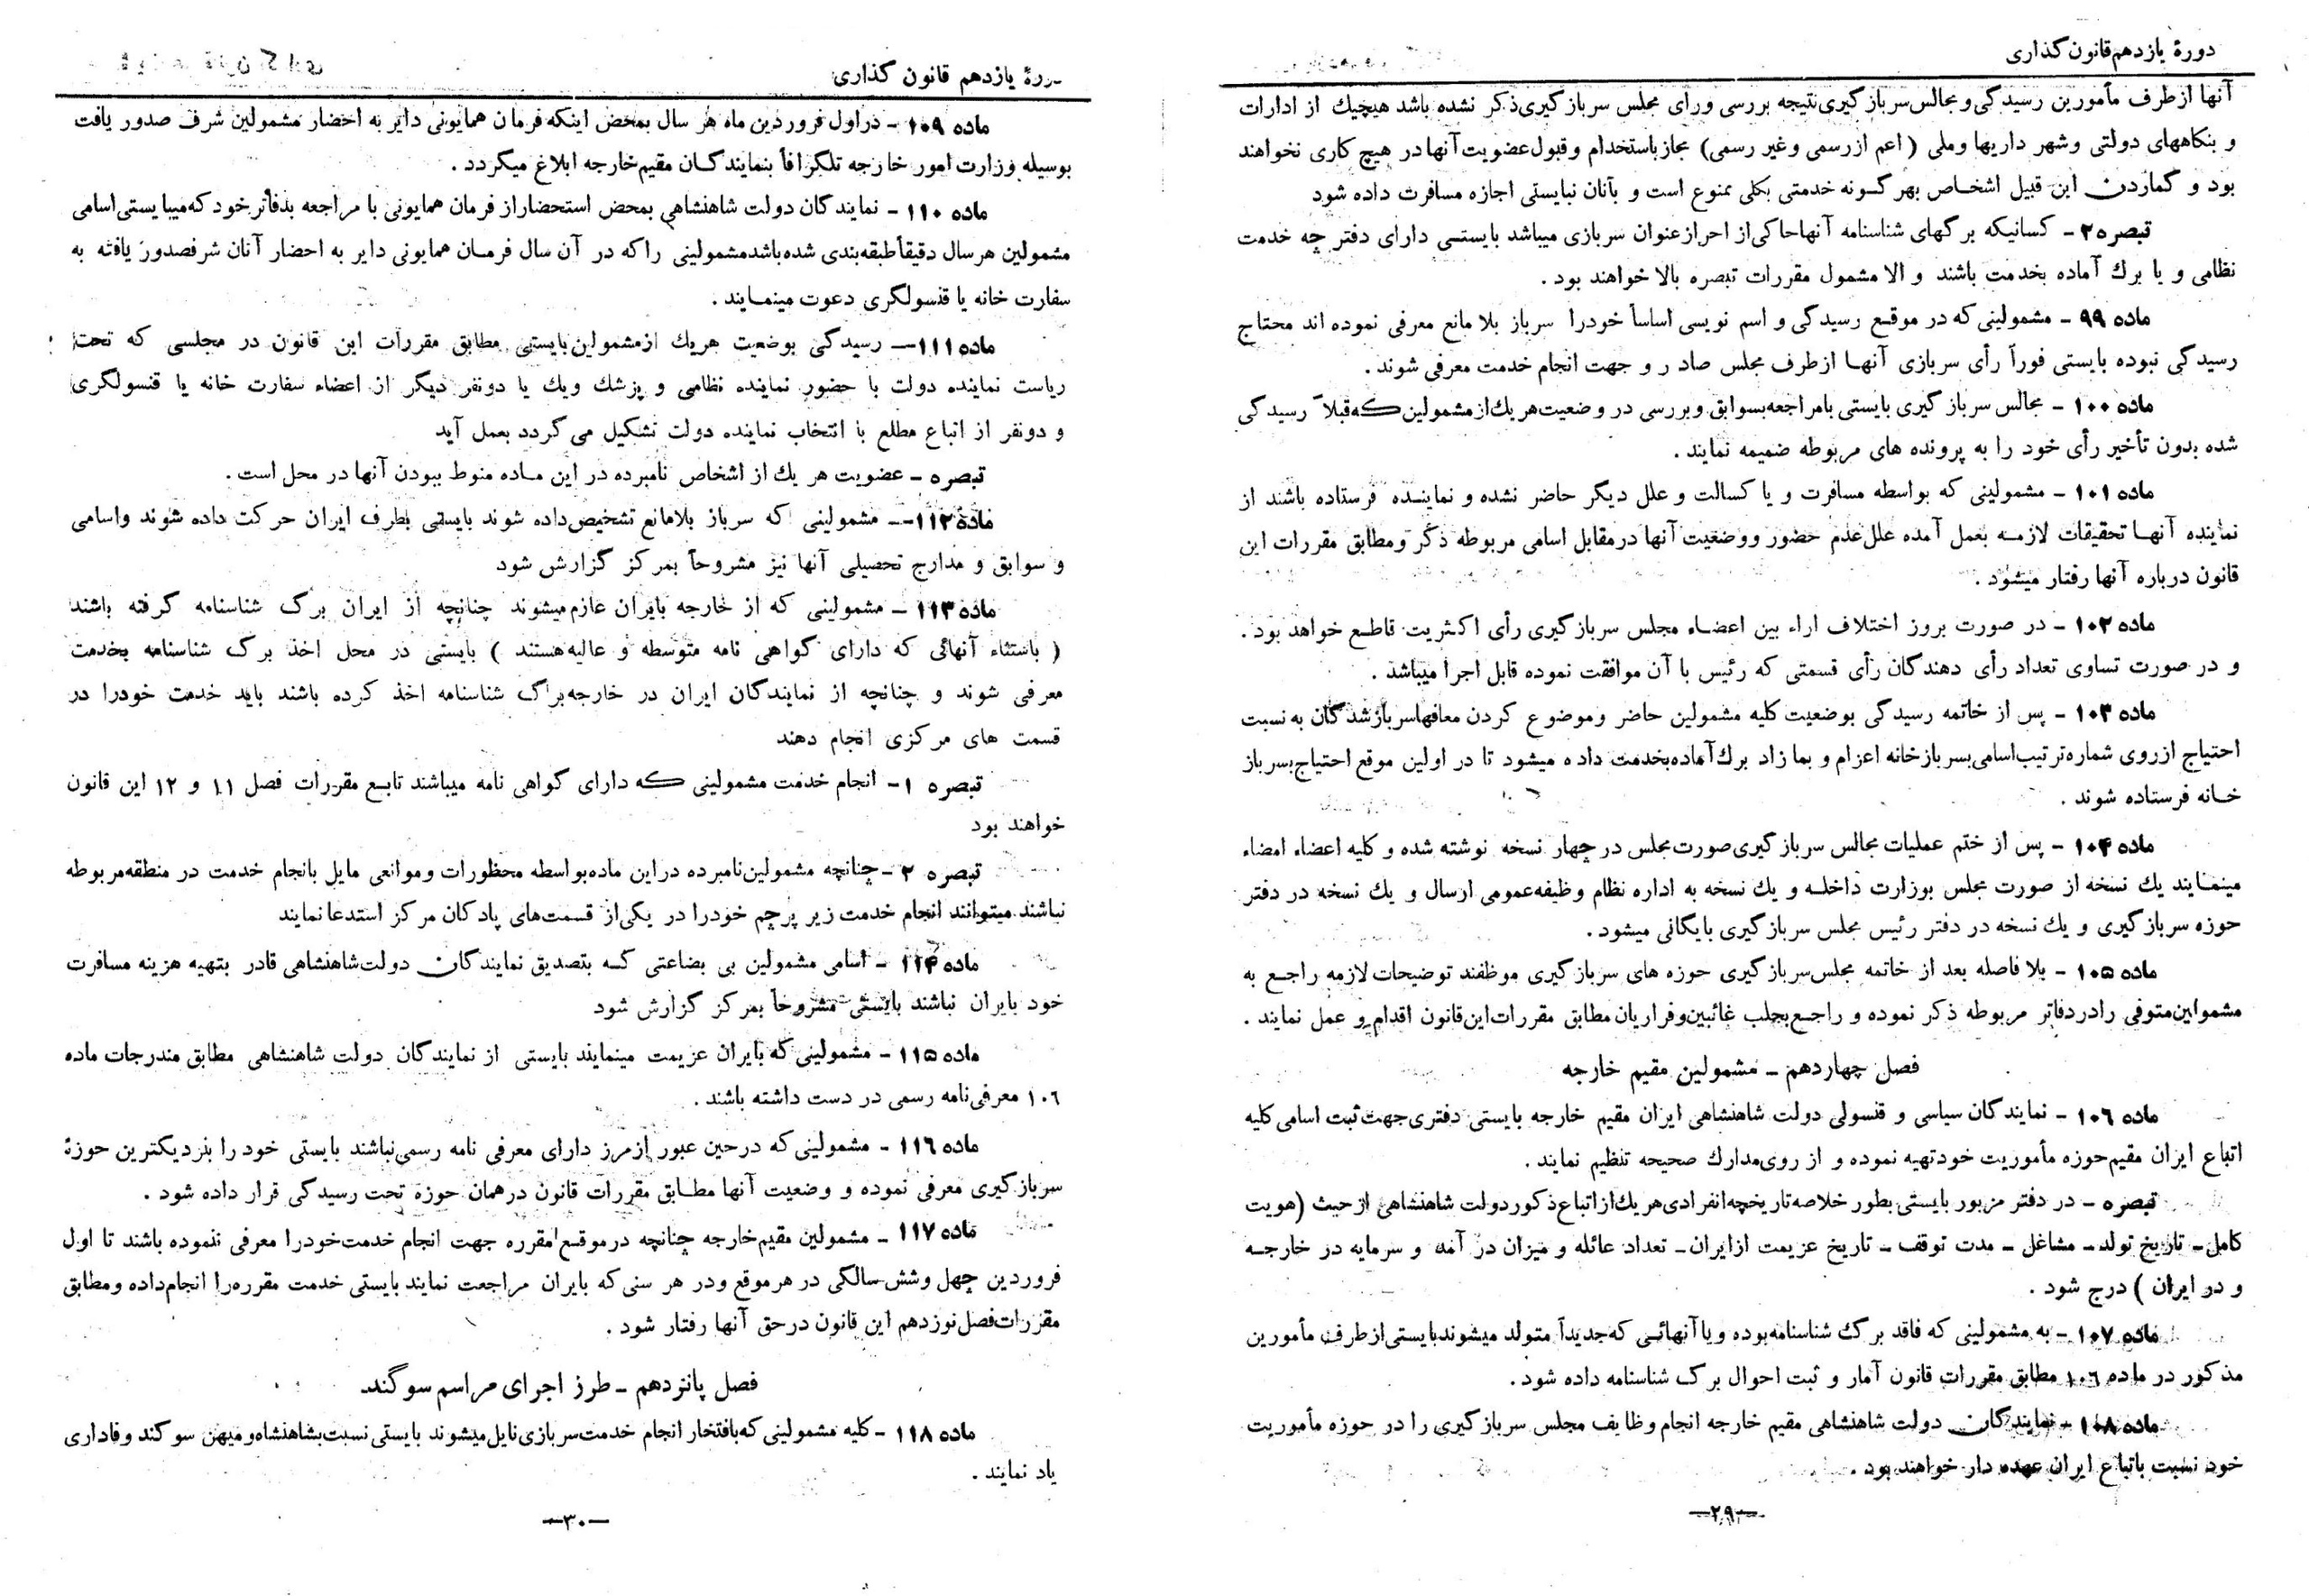 دورۀ یازدهم قانون گذاری
آنها از طرف مأمورین رسیدگی و مجالس سرباز گیری نتیجه بررسی و رأی مجلس سرباز گیری ذکر نشده باشد هیچیك از ادارات
و بنگاههای دولتی و شهر داریها و ملی ( اعم از رسمی و غیر رسمی ) مجاز باستخدام و قبول عضویت آنها در هیچ کاری نخواهند
بود و گماردن این قبیل اشخاص بهر گونه خدمتی بکلی ممنوع است و بآنان نبایستی اجازه مسافرت داده شود
تبصره ۲ - کسانیکه برگهای شناسنامه آنها حاکی از احراز عنوان سربازی میباشد بایستی دارای دفتر چه خدمت
نظامی و یا برك آماده بخدمت باشند و الا مشمول مقررات تبصره بالا خواهند بود .
ماده ۹۹ - مشمولینی که در موقع رسیدگی و اسم نویسی اساساً خودرا سرباز بلا مانع معرفی نموده اند محتاج
رسیدگی نبوده بایستی فوراً رأی سربازی آنها از طرف مجلس صادر و جهت انجام خدمت معرفی شوند .
ماده ۱۰۰ - مجالس سرباز گیری بایستی بامراجعه بسوابق و بررسی در وضعیت هر یك از مشمولین که قبلاً رسیدگی
شده بدون تأخیر رأی خود را به پرونده های مربوطه ضمیمه نمایند .
ماده ۱۰۱ - مشمولینی که بواسطه مسافرت و یا کسالت و علل دیگر حاضر نشده و نماینده فرستاده باشند از
نماینده آنها تحقیقات لازمه بعمل آمده علل عدم حضور و وضعیت آنها در مقابل اسامی مربوطه ذکر و مطابق مقررات این
قانون درباره آنها رفتار میشود .
ماده ۱۰۲ - در صورت بروز اختلاف اراء بین اعضاء مجلس سرباز گیری رأی اکثریت قاطع خواهد بود .
و در صورت تساوی تعداد رأی دهندگان رأی قسمتی که رئیس با آن موافقت نموده قابل اجرا میباشد .
ماده ۱۰۳ - پس از خاتمه رسیدگی بوضعیت کلیه مشمولین حاضر و موضوع کردن معافها سرباز شدگان به نسبت
احتیاج از روی شماره ترتیب اسامی بسرباز خانه اعزام و بما زاد برك آماده بخدمت داده میشود تا در اولین موقع احتیاج بسرباز
خانه فرستاده شوند .
ماده ۱۰۴ - پس از ختم عملیات مجالس سرباز گیری صورت مجلس در چهار نسخه نوشته شده و کلیه اعضاء امضاء
مینمایند یك نسخه از صورت مجلس بوزارت داخله و یك نسخه به اداره نظام وظیفه عمومی ارسال و یك نسخه در دفتر
حوزه سرباز گیری و یك نسخه در دفتر رئیس مجلس سرباز گیری بایگانی میشود .
ماده ۱۰۵ - بلا فاصله بعد از خاتمه مجلس سرباز گیری حوزه های سرباز گیری موظفند توضیحات لازمه راجع به
مشمولین متوفی را در دفاتر مربوطه ذکر نموده و راجع بجلب غائبین و فراریان مطابق مقررات این قانون اقدام و عمل نمایند .
فصل چهاردهم - مشمولین مقیم خارجه
ماده ۱۰۶ - نمایندگان سیاسی و قنسولی دولت شاهنشاهی ایران مقیم خارجه بایستی دفتری جهت ثبت اسامی کلیه
اتباع ایران مقیم حوزه مأموریت خود تهیه نموده و از روی مدارك صحیحه تنظیم نمایند .
تبصره - در دفتر مزبور بایستی بطور خلاصه تاریخچه انفرادی هر یك از اتباع ذکور دولت شاهنشاهی از حیث (هویت
کامل - تاریخ تولد - مشاغل - مدت توقف - تاریخ عزیمت از ایران - تعداد عائله و میزان در آمد و سرمایه در خارجه
و در ایران ) درج شود .
ماده ۱۰۷ - به مشمولینی که فاقد برگ شناسنامه بوده و یا آنهائی که جدیداً متولد میشوند بایستی از طرف مأمورین
مذکور در ماده ۱۰۶ مطابق مقررات قانون آمار و ثبت احوال برگ شناسنامه داده شود .
ماده ۱۰۸ - نمایندگان دولت شاهنشاهی مقیم خارجه انجام وظایف مجلس سرباز گیری را در حوزه مأموریت
خود نسبت باتباع ایران عهده دار خواهند بود .
—۲۹—
دورۀ یازدهم قانون گذاری
ماده ۱۰۹ - در اول فروردین ماه هر سال بمحض اینکه فرمان همایونی دایر به احضار مشمولین شرف صدور یافت
بوسیله وزارت امور خارجه تلگرافاً بنمایندگان مقیم خارجه ابلاغ میگردد .
ماده ۱۱۰ - نمایندگان دولت شاهنشاهی بمحض استحضار از فرمان همایونی با مراجعه بدفاتر خود که میبایستی اسامی
مشمولین هر سال دقیقاً طبقه بندی شده باشد مشمولینی را که در آن سال فرمان همایونی دایر به احضار آنان شرفصدور یافته به
سفارت خانه یا قنسولگری دعوت مینمایند .
ماده ۱۱۱ - رسیدگی بوضعیت هر یك از مشمولین بایستی مطابق مقررات این قانون در مجلسی که تحت
ریاست نماینده دولت با حضور نماینده نظامی و پزشك و یك یا دو نفر دیگر از اعضاء سفارت خانه یا قنسولگری
و دو نفر از اتباع مطلع با انتخاب نماینده دولت تشکیل می گردد بعمل آید
تبصره - عضویت هر یك از اشخاص نامبرده در این ماده منوط ببودن آنها در محل است .
ماده ۱۱۲ - مشمولینی که سرباز بلامانع تشخیص داده شوند بایستی بطرف ایران حرکت داده شوند و اسامی
و سوابق و مدارج تحصیلی آنها نیز مشروحاً بمرکز گزارش شود
ماده ۱۱۳ - مشمولینی که از خارجه بایران عازم میشوند چنانچه از ایران برگ شناسنامه گرفته باشند
( باستثناء آنهائی که دارای گواهی نامه متوسطه و عالیه هستند ) بایستی در محل اخذ برگ شناسنامه بخدمت
معرفی شوند و چنانچه از نمایندگان ایران در خارجه برگ شناسنامه اخذ کرده باشند باید خدمت خودرا در
قسمت های مرکزی انجام دهند
تبصره ۱ - انجام خدمت مشمولینی که دارای گواهی نامه میباشند تابع مقررات فصل ۱۱ و ۱۲ این قانون
خواهند بود
تبصره ۲ - چنانچه مشمولین نامبرده در این ماده بواسطه محظورات و موانعی مایل بانجام خدمت در منطقه مربوطه
نباشند میتوانند انجام خدمت زیر پرچم خودرا در یکی از قسمت‌های پادگان مرکز استدعا نمایند
ماده ۱۱۴ - اسامی مشمولین بی بضاعتی که بتصدیق نمایندگان دولت شاهنشاهی قادر بتهیه هزینه مسافرت
خود بایران نباشند بایستی مشروحاً بمرکز گزارش شود
ماده ۱۱۵ - مشمولینی که بایران عزیمت مینمایند بایستی از نمایندگان دولت شاهنشاهی مطابق مندرجات ماده
۱۰۶ معرفی نامه رسمی در دست داشته باشند .
ماده ۱۱۶ - مشمولینی که در حین عبور از مرز دارای معرفی نامه رسمی نباشند بایستی خود را بنزدیکترین حوزۀ
سرباز گیری معرفی نموده و وضعیت آنها مطابق مقررات قانون در همان حوزه تحت رسیدگی قرار داده شود .
ماده ۱۱۷ - مشمولین مقیم خارجه چنانچه در موقع مقرره جهت انجام خدمت خودرا معرفی ننموده باشند تا اول
فروردین چهل و شش سالگی در هر موقع و در هر سنی که بایران مراجعت نمایند بایستی خدمت مقرره را انجام داده و مطابق
مقررات فصل نوزدهم این قانون در حق آنها رفتار شود .
فصل پانزدهم - طرز اجرای مراسم سوگند
ماده ۱۱۸ - کلیه مشمولینی که بافتخار انجام خدمت سربازی نایل میشوند بایستی نسبت بشاهنشاه و میهن سوگند وفاداری
یاد نمایند .
—۳۰—